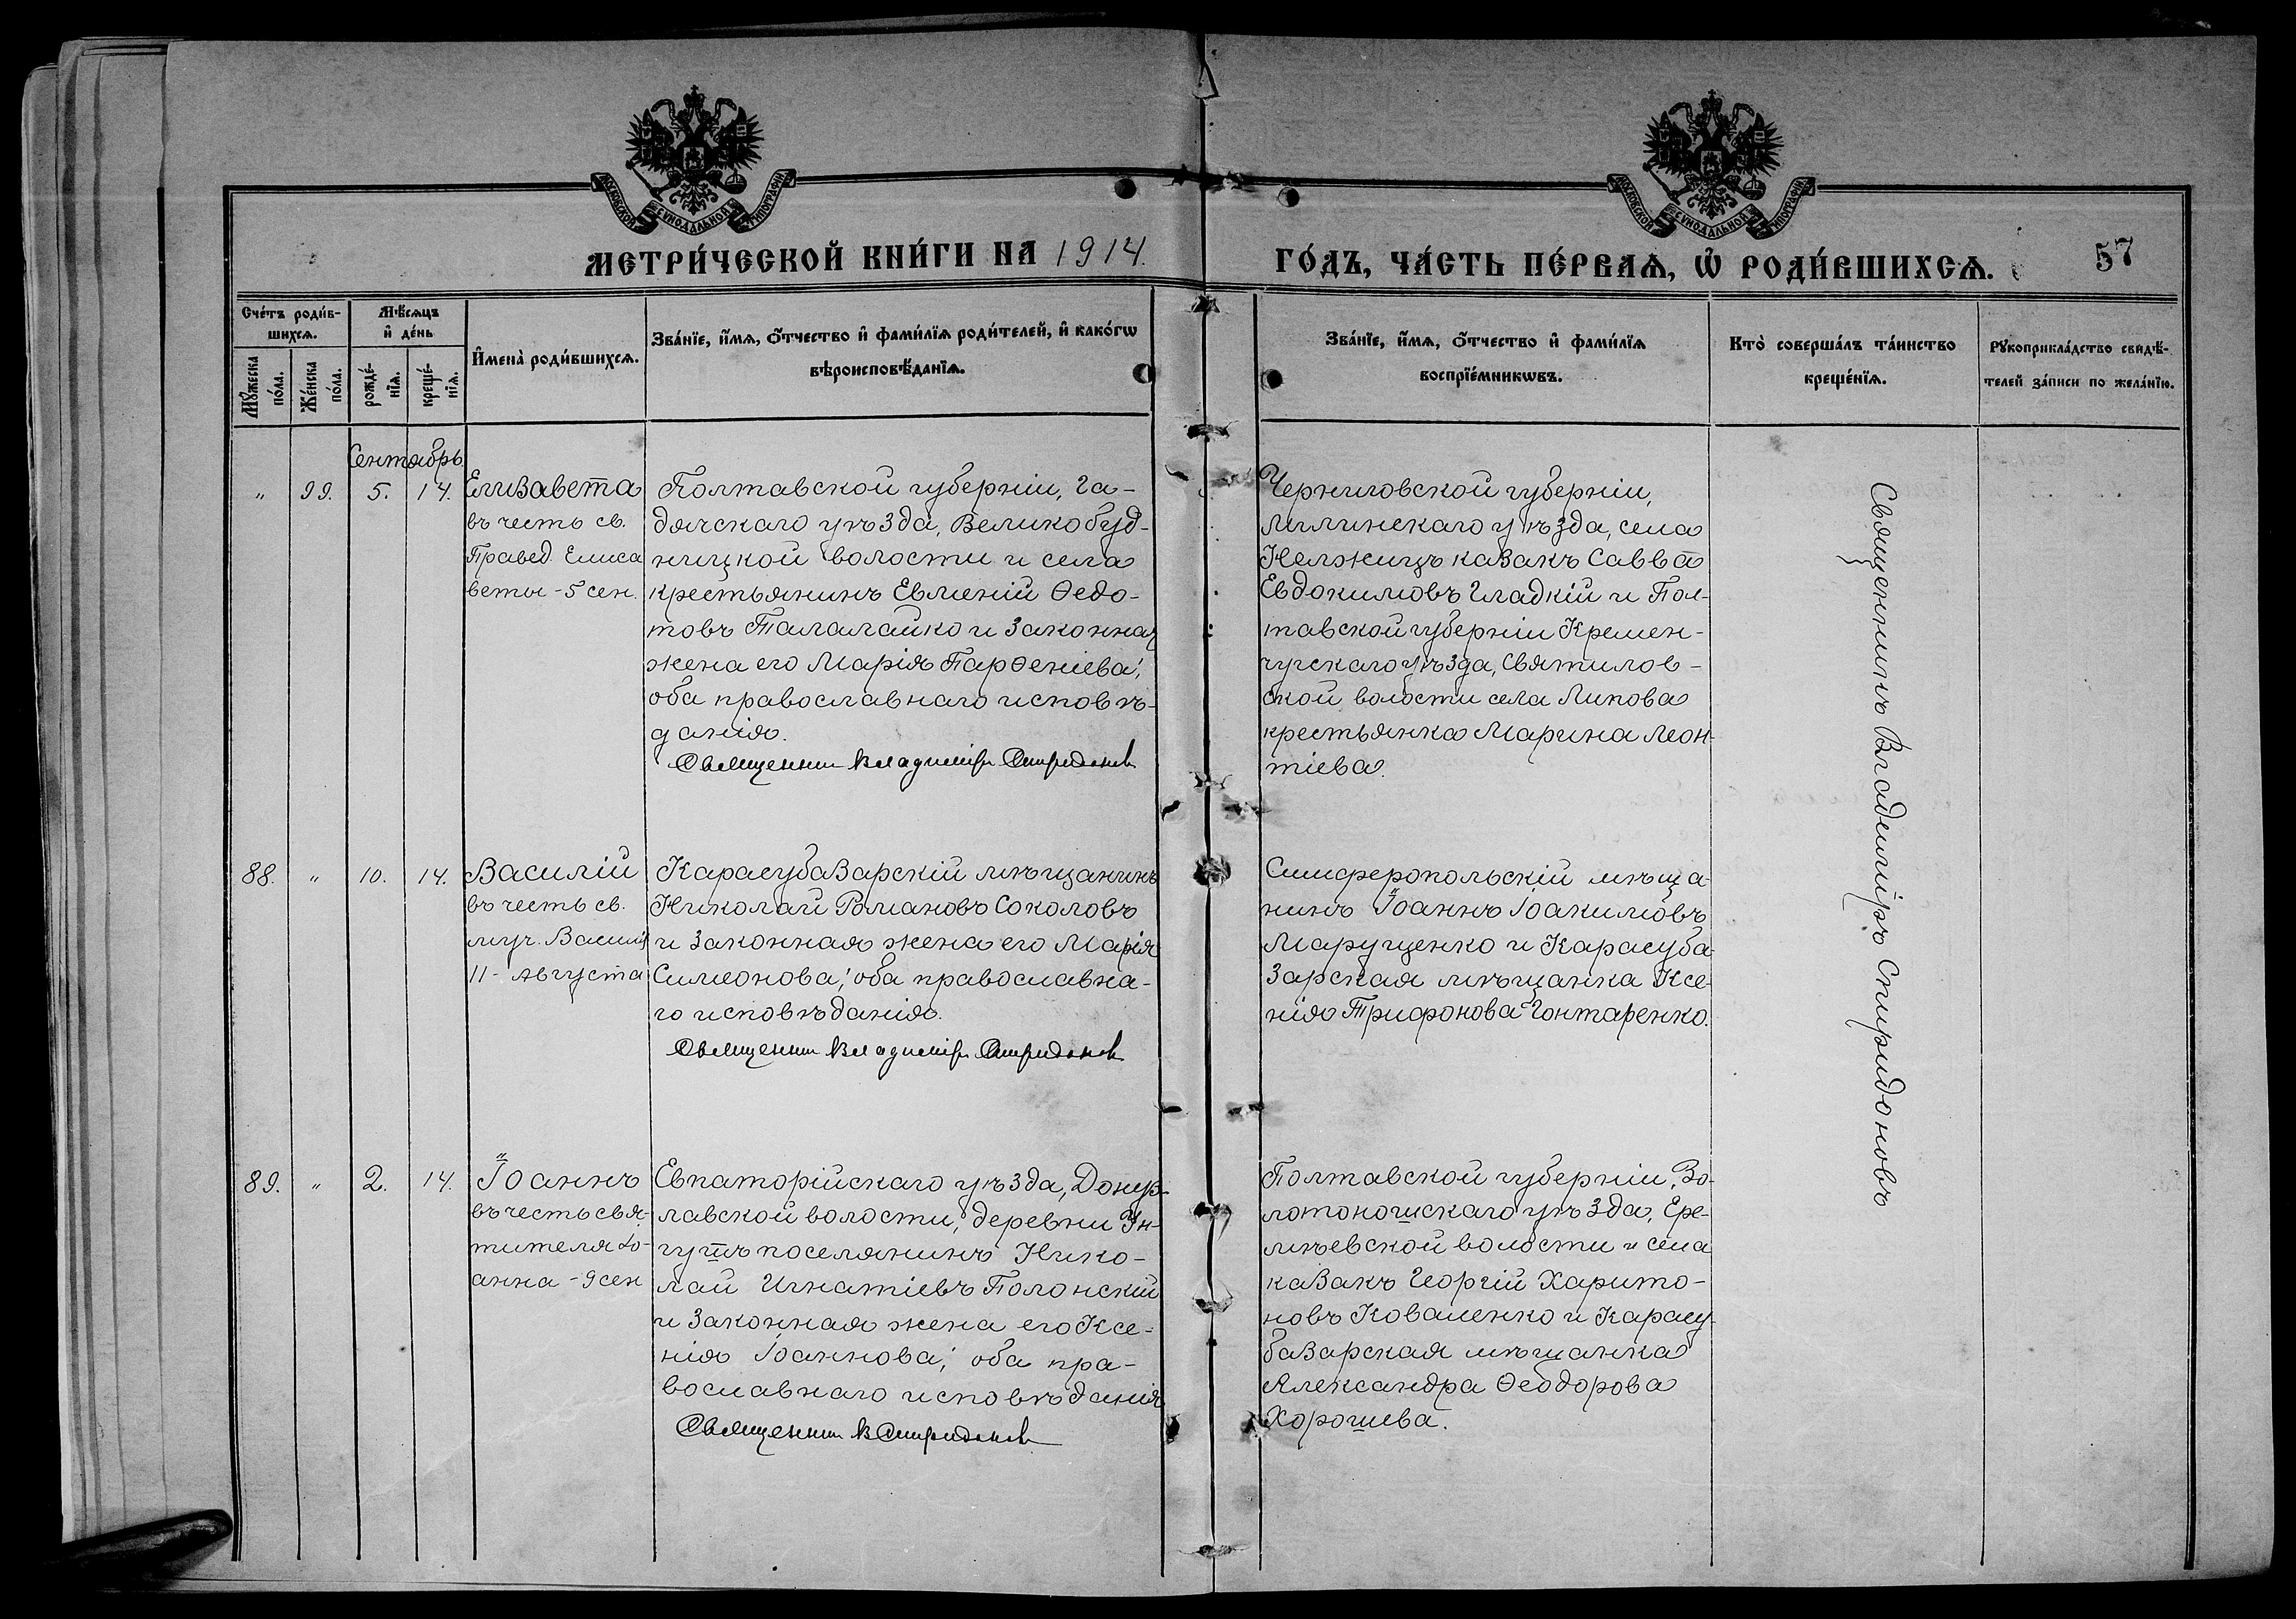 МОСКОВСКОЙ СѴНОДАЛЬНОЙ ТИПОГРАФІИ
МОСКОВСКОЙ СѴНОДАЛЬНОЙ ТИПОГРАФІИ
МЕТРИ́ЧЕСКОЙ КНИ́ГИ НА 1914.
ГО́ДЪ, ЧА́СТЬ ПЕ́РВАѦ, Ѡ҆ РОДИ́ВШИХСѦ.
57
Сче́тъ роди́в-
шихсѧ.
Мꙋ́жеска
по́ла.
Же́нска
по́ла.
Мѣ́сѧцъ
и҆ де́нь
рожде́-
нїѧ.
креще́-
нїѧ.
И҆мена̀ роди́вшихсѧ.
Зва́нїе, и҆́мѧ, ѻ҆́тчество и҆ фами́лїѧ роди́телей, и҆ како́гѡ
вѣроисповѣ́данїѧ.
Зва́нїе, и҆́мѧ, ѻ҆́тчество и҆ фами́лїѧ
воспрїе́мникѡвъ.
Кто̀ соверша́лъ та́инство
креще́нїѧ.
Рꙋкоприкла́дство свидѣ́-
телей за́писи по жела́нїю.
Сентябрь
„ 99. 5. 14.
Елизавета
въ честь св.
Правед. Елиса
веты - 5 сен.
Полтавской губерніи, Га-
дячскаго уѣзда, Великобуд-
ницкой волости и села
крестьянинъ Евмений Ѳедо-
товъ Талалайко и законная
жена его Марія Парѳеніева;
оба православнаго исповѣ-
данія.
Священник Владимір Спиридонов
Черниговской губерніи,
Мглинскаго уѣзда, села
Нелжицъ казакъ Савва
Евдокимовъ Гладкій и Пол-
тавской губерніи Кремен-
чугскаго уѣзда, Святилов-
ской волости села Липова
крестьянка Марина Леон-
тіева.
Священникъ Владиміръ Спиридоновъ
88. „ 10. 14.
Василій
въ честь св.
муч. Василія
11 - Августа
Карасубазарскій мѣщанинъ
Николай Романовъ Соколовъ
и законная жена его Марія
Симеонова; оба православна-
го исповѣданія.
Священник Владимір Спиридонов
Симферопольскій мѣща-
нинъ Іоаннъ Іоакимовъ
Марущенко и Карасуба-
зарская мѣщанка Ксе-
нія Трифонова Гонтаренко.
89. „ 2. 14.
Іоаннъ
въ честь свя-
тителя Іо-
анна - 9 сен
Евпаторійскаго уѣзда, Донуз-
лавской волости, деревни Ун-
гутъ поселянинъ Нико-
лай Игнатіевъ Полонскій
и законная жена его Ксе-
нія Іоаннова; оба пра-
вославнаго исповѣданія
Священник В Спиридонов
Полтавской губерніи, Зо-
лотоношскаго уѣзда, Ере-
мѣевской волости и села
казакъ Георгій Харито-
новъ Коваленко и Карасу-
базарская мѣщанка
Александра Ѳеодорова
Хорошева.